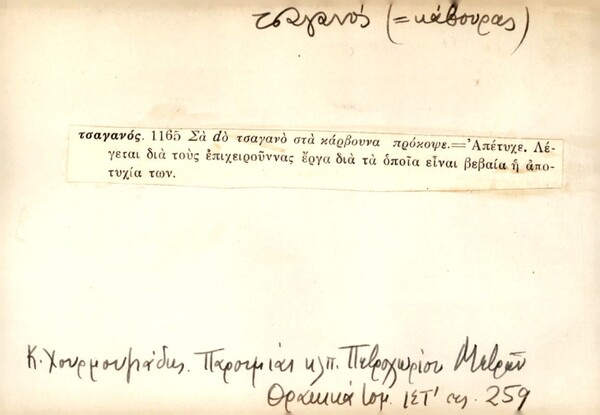 τσαγανός (= κάβουρας)
τσαγανός. 1165 Σὰ dὸ τσαγανὸ στὰ κάρβουνα πρόκοψε.=Ἀπέτυχε. Λέ-
γεται διὰ τοὺς ἐπιχειροῦννας ἔργα διὰ τὰ ὁποῖα εἶναι βεβαία ἡ ἀπο-
τυχία των.
Κ. Χουρμουζιάδης. Παροιμίαι κλπ. Πετροχωρίου Μετρῶν
Θρακικά τομ. ΙΣΤ' σς. 259